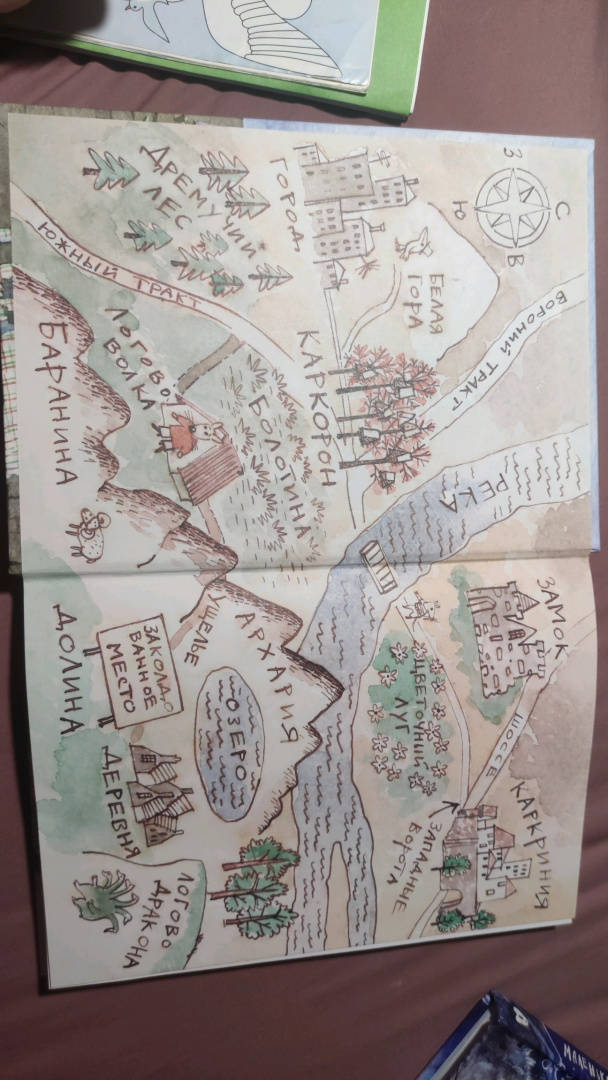 С
З
В
Ю
ВОРОНИЙ ТРАКТ
БЕЛАЯ
ГОРА
ГОРОД
ДРЕМУЧИЙ
ЛЕС
ЮЖНЫЙ ТРАКТ
КАРКОРОН
БОЛОТИНА
ЛОГОВО
ВОЛКА
БАРАНИНА
РЕКА
ЗАМОК
ШОССЕ
КАРКРИНИЯ
ЗАПАДНЫЕ
ВОРОТА
ЦВЕТОЧНЫЙ
ЛУГ
АРХАРИЯ
УЩЕЛЬЕ
ОЗЕРО
ЗАКОЛДО
ВАННОЕ
МЕСТО
ДОЛИНА
ДЕРЕВНЯ
ЛОГОВО
ДРАКОНА